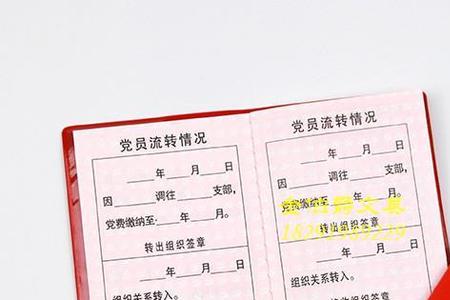 党员流转情况
____年____月____日
因____调往____支部,
党费缴纳至:____年____月。
转出组织签章
____年____月____日
组织关系转入。
党员流转情况
____年____月____日
因____调往____支部,
党费缴纳至:____年____月。
转出组织签章
____年____月____日
组织关系转入。